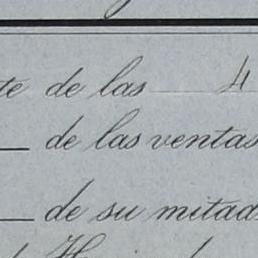 te de las 4
de las ventas
de su mitad